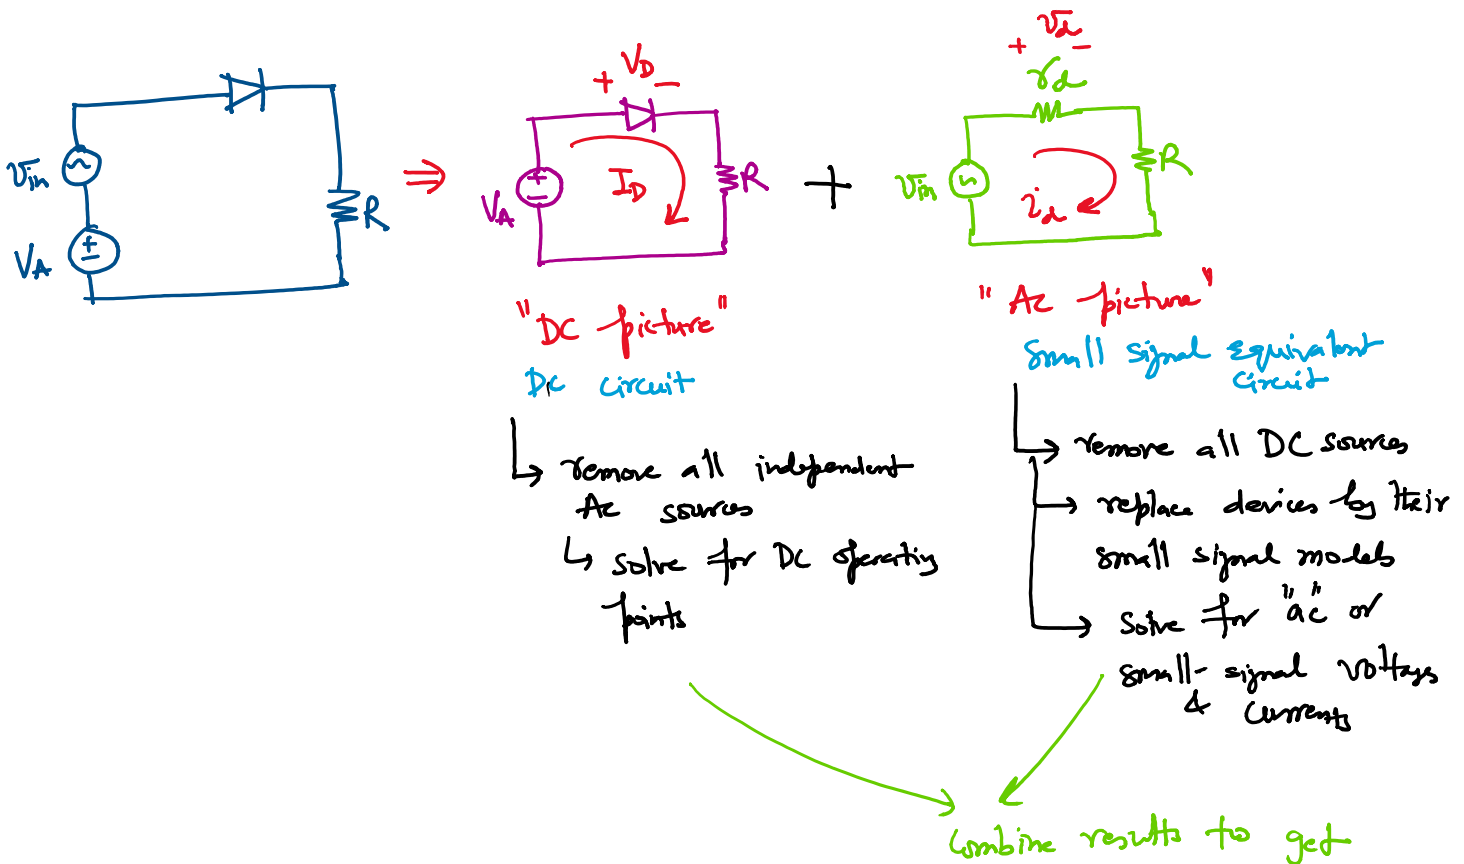 vin
VA
R
⇒
+ VD −
VA
ID
R
+
+ vd −
rd
vin
id
R
"DC picture"
DC circuit
↳ remove all independent
AC sources
↳ solve for DC operating
points
"AC picture"
small signal equivalent
circuit
→ remove all DC sources
→ replace devices by their
small signal models
→ solve for "ac" or
small-signal voltages
& currents
combine results to get